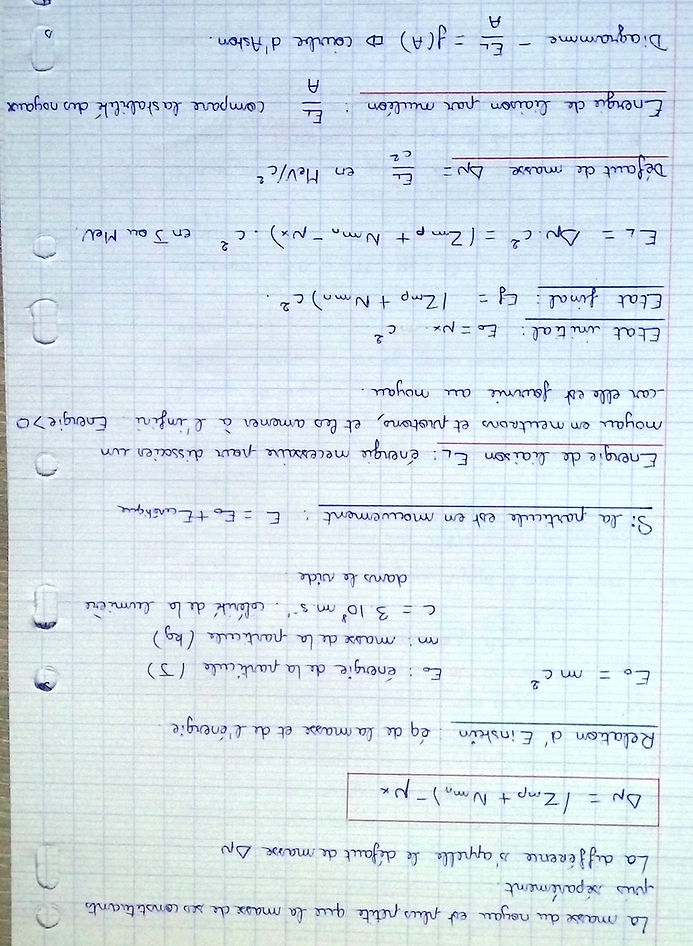 La masse du noyau est plus petite que la masse de ses constituants
pris séparément.
La différence s'appelle le défaut de masse Δμ
Δμ = (Zmp + Nmn) - μx
Relation d'Einstein : éq de la masse et de l'énergie.
E₀ = mc² E₀ : énergie de la particule (J)
m : masse de la particule (kg)
c = 3 10⁸ m.s⁻¹ célérité de la lumière
dans le vide.
Si la particule est en mouvement : E = E₀ + Ecinétique
Energie de liaison EL : énergie necessaire pour dissocier un
noyau en neutrons et protons, et les amener à l'infini Energie > 0
car elle est fournie au noyau.
Etat initial : E₀ = μx c²
Etat final : Ef = (Zmp + Nmn) c².
EL = Δμ.c² = (Zmp + Nmn - μx).c² en J ou MeV.
Défaut de masse Δμ = EL/c² en MeV/c²
Energie de liaison par nucléon : EL/A compare la stabilité des noyaux
Diagramme - EL/A = f(A) ⇨ courbe d'Aston.